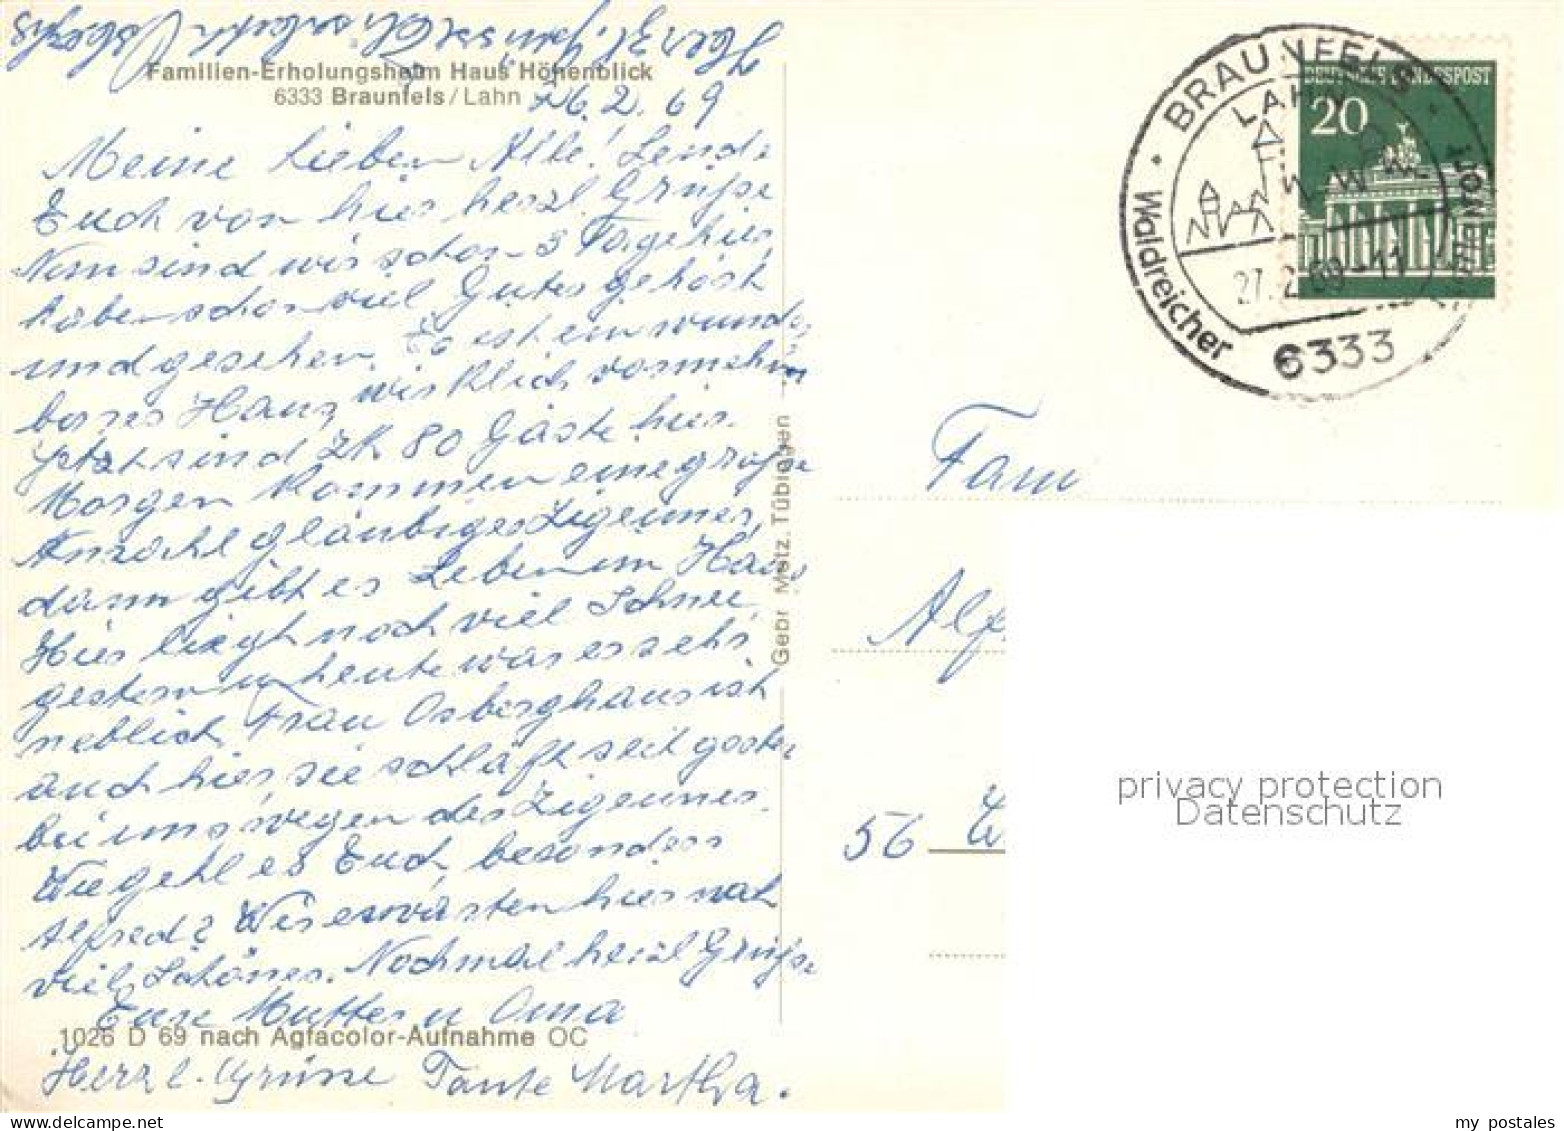 Herzl. Grüsse Elisabeth
Familien-Erholungsheim Haus Höhenblick
6333 Braunfels/Lahn
26.2.69
Meine lieben Alle! Sende
Euch von hier herzl. Grüße
Nun sind wir schon 3 Tage hier,
haben schon viel Gutes gehört
und gesehen. Es ist ein wunder
bares Haus, wirklich vornehm
Jetzt sind zk 80 Gäste hier.
Morgen kommen eine große
Anzahl gläubiger Zigeuner,
dann gibt es Leben im Haus
Hier liegt noch viel Schnee,
gestern u heute war es sehr
neblich, Frau Osberghaus ist
auch hier, sie schläft seit gester
bei uns wegen der Zigeuner.
Wie geht es Euch, besonders
Alfred? Wir erwarten hier noch
viel Schönes. Nochmal herzl Grüße
Eure Mutter u Oma
1026 D 69 nach Agfacolor-Aufnahme OC
Herzl. Grüsse Tante Martha.
Gebr. Metz, Tübingen
BRAUNFELS
LAHN
Waldreicher
Luftkurort
27.2.69-11
6333
DEUTSCHE BUNDESPOST
20
Fam
Alf
56
privacy protection
Datenschutz
my postales